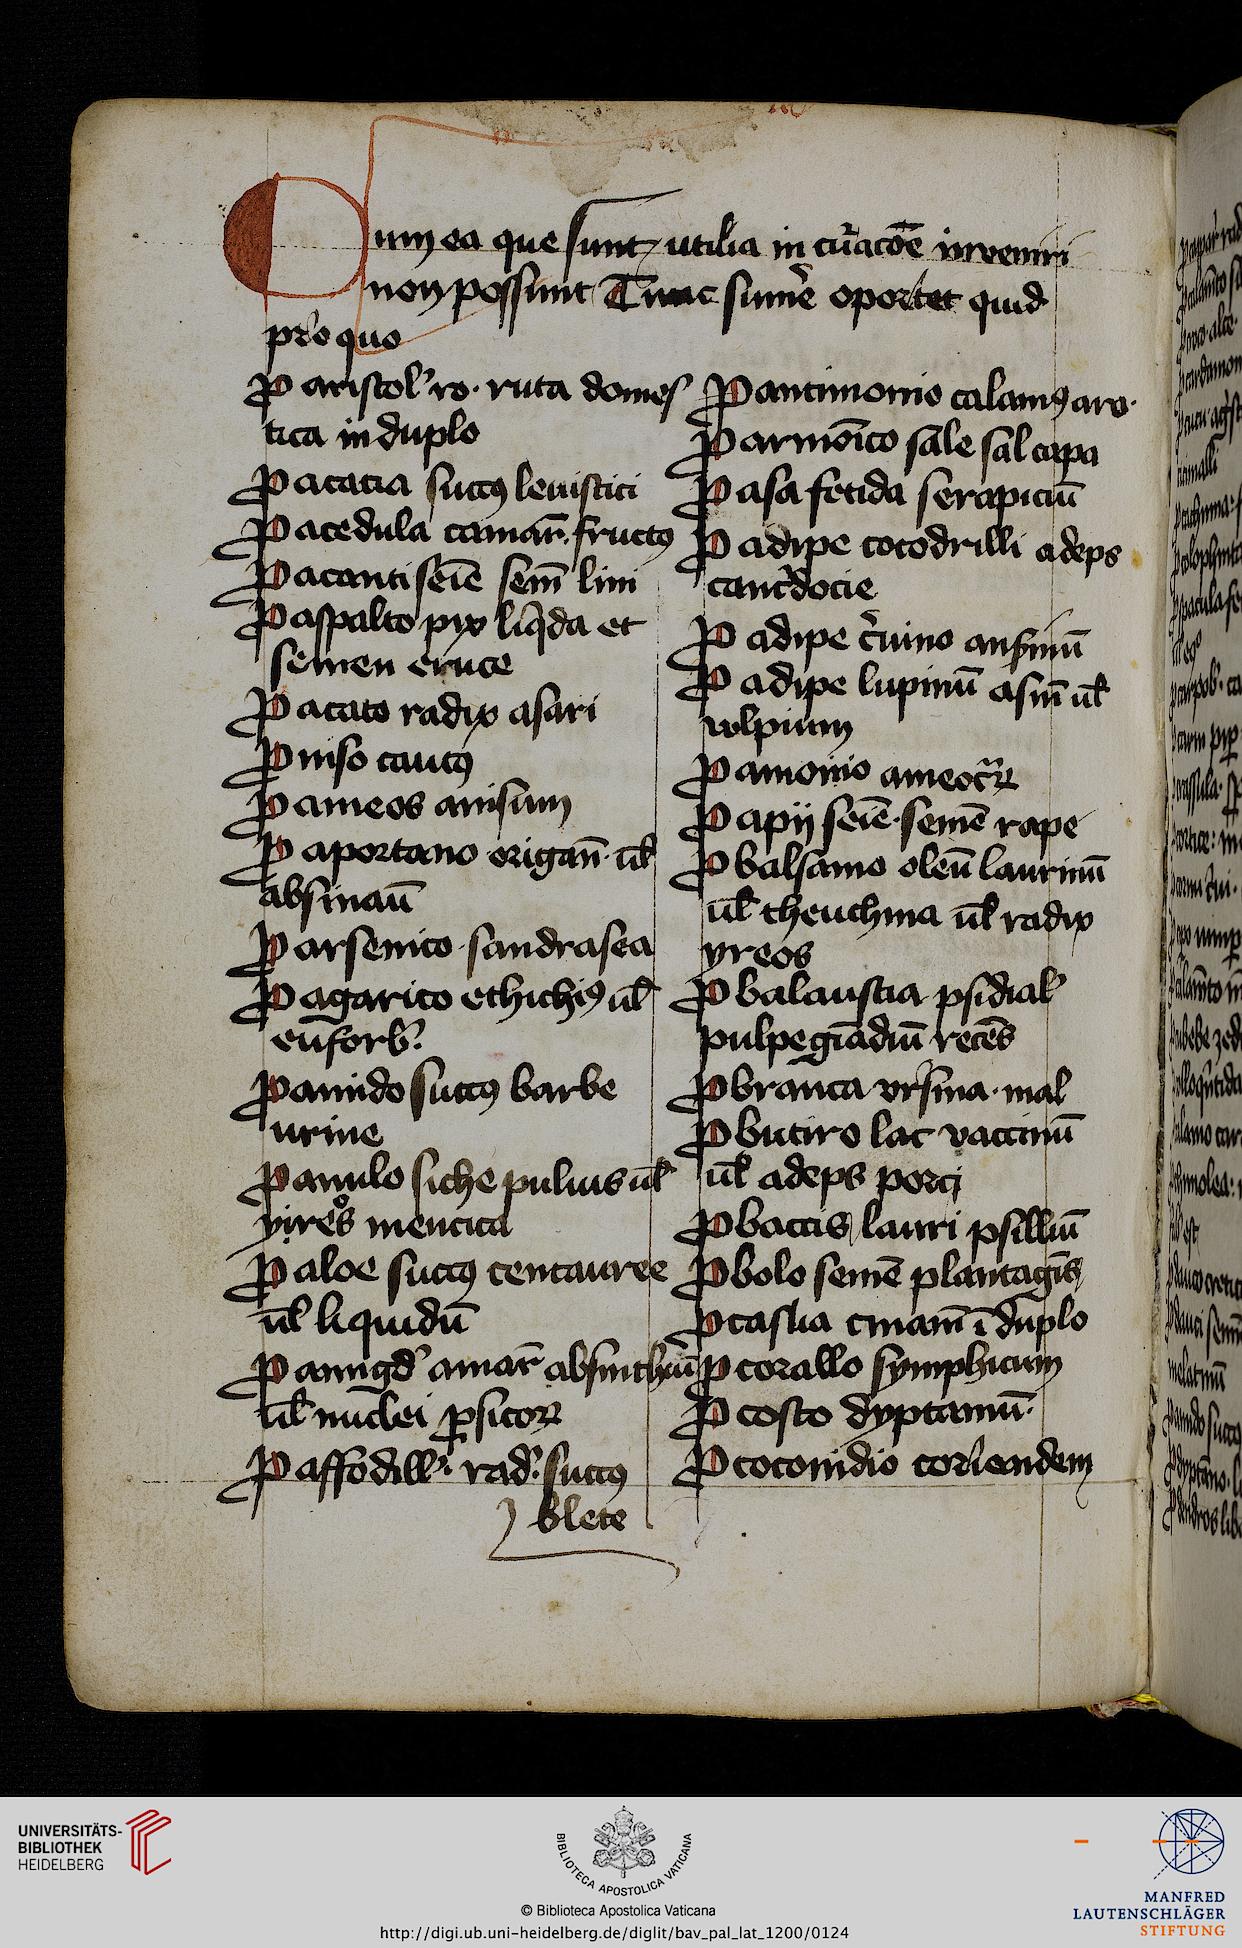 Cum ea que sunt utilia in curacõe inveniri
non possunt Tunc sumẽ oportet quid
pro quo
P aristol' ro. ruta domes
tica in duplo
P acacia succꝰ levistici
P acedula camar̃. fructꝰ
P acanti seĩe sem̃ lini
P aspalto pix liq̃da et
semen eruce
P acato radix asari
P niso caucꝰ
P ameos anisum
P aportano origañ. ul̃
absinciũ
P arsenico sandrasea
P agarico ethichiꝰ ul̃
euforb̃.
P amido succꝰ barbe
urine
P amilo siche pulvis ul̃
yireos mencica
P aloe succꝰ centauree
ul̃ liquidũ
P amigd' amar̃ absinthiũ
ul̃ nuclei ꝑsicoꝝ
P affodill'. rad'. succꝰ
blete
P antimonio calamꝰ aro.
P armoĩco sale sal capa
P asa fetida serapiciũ
P adipe cocodrilli adeps
canĩdocie
P adipe c̃vino ansinũ
P adipe lupinũ asiñ ul̃
wlpium
P amonio
P apij seĩe. semẽ rape
P balsamo oleũ laurinũ
ul̃ theuchina ul̃ radix
yreos
P balaustia psidial'
pulpe gr̃adiũ recẽs
P branca vrsina. mal
P butiro lac vaccinũ
ul̃ adeps porci
P baccis lauri psilliũ
P bolo semẽ plantagĩs
P casia cinam̃ ĩ duplo
P corallo symphicum
P costo dyptamũ.
P coconidio coriandem
UNIVERSITÄTS-
BIBLIOTHEK
HEIDELBERG
BIBLIOTECA APOSTOLICA VATICANA
© Biblioteca Apostolica Vaticana
http://digi.ub.uni-heidelberg.de/diglit/bav_pal_lat_1200/0124
MANFRED
LAUTENSCHLÄGER
STIFTUNG